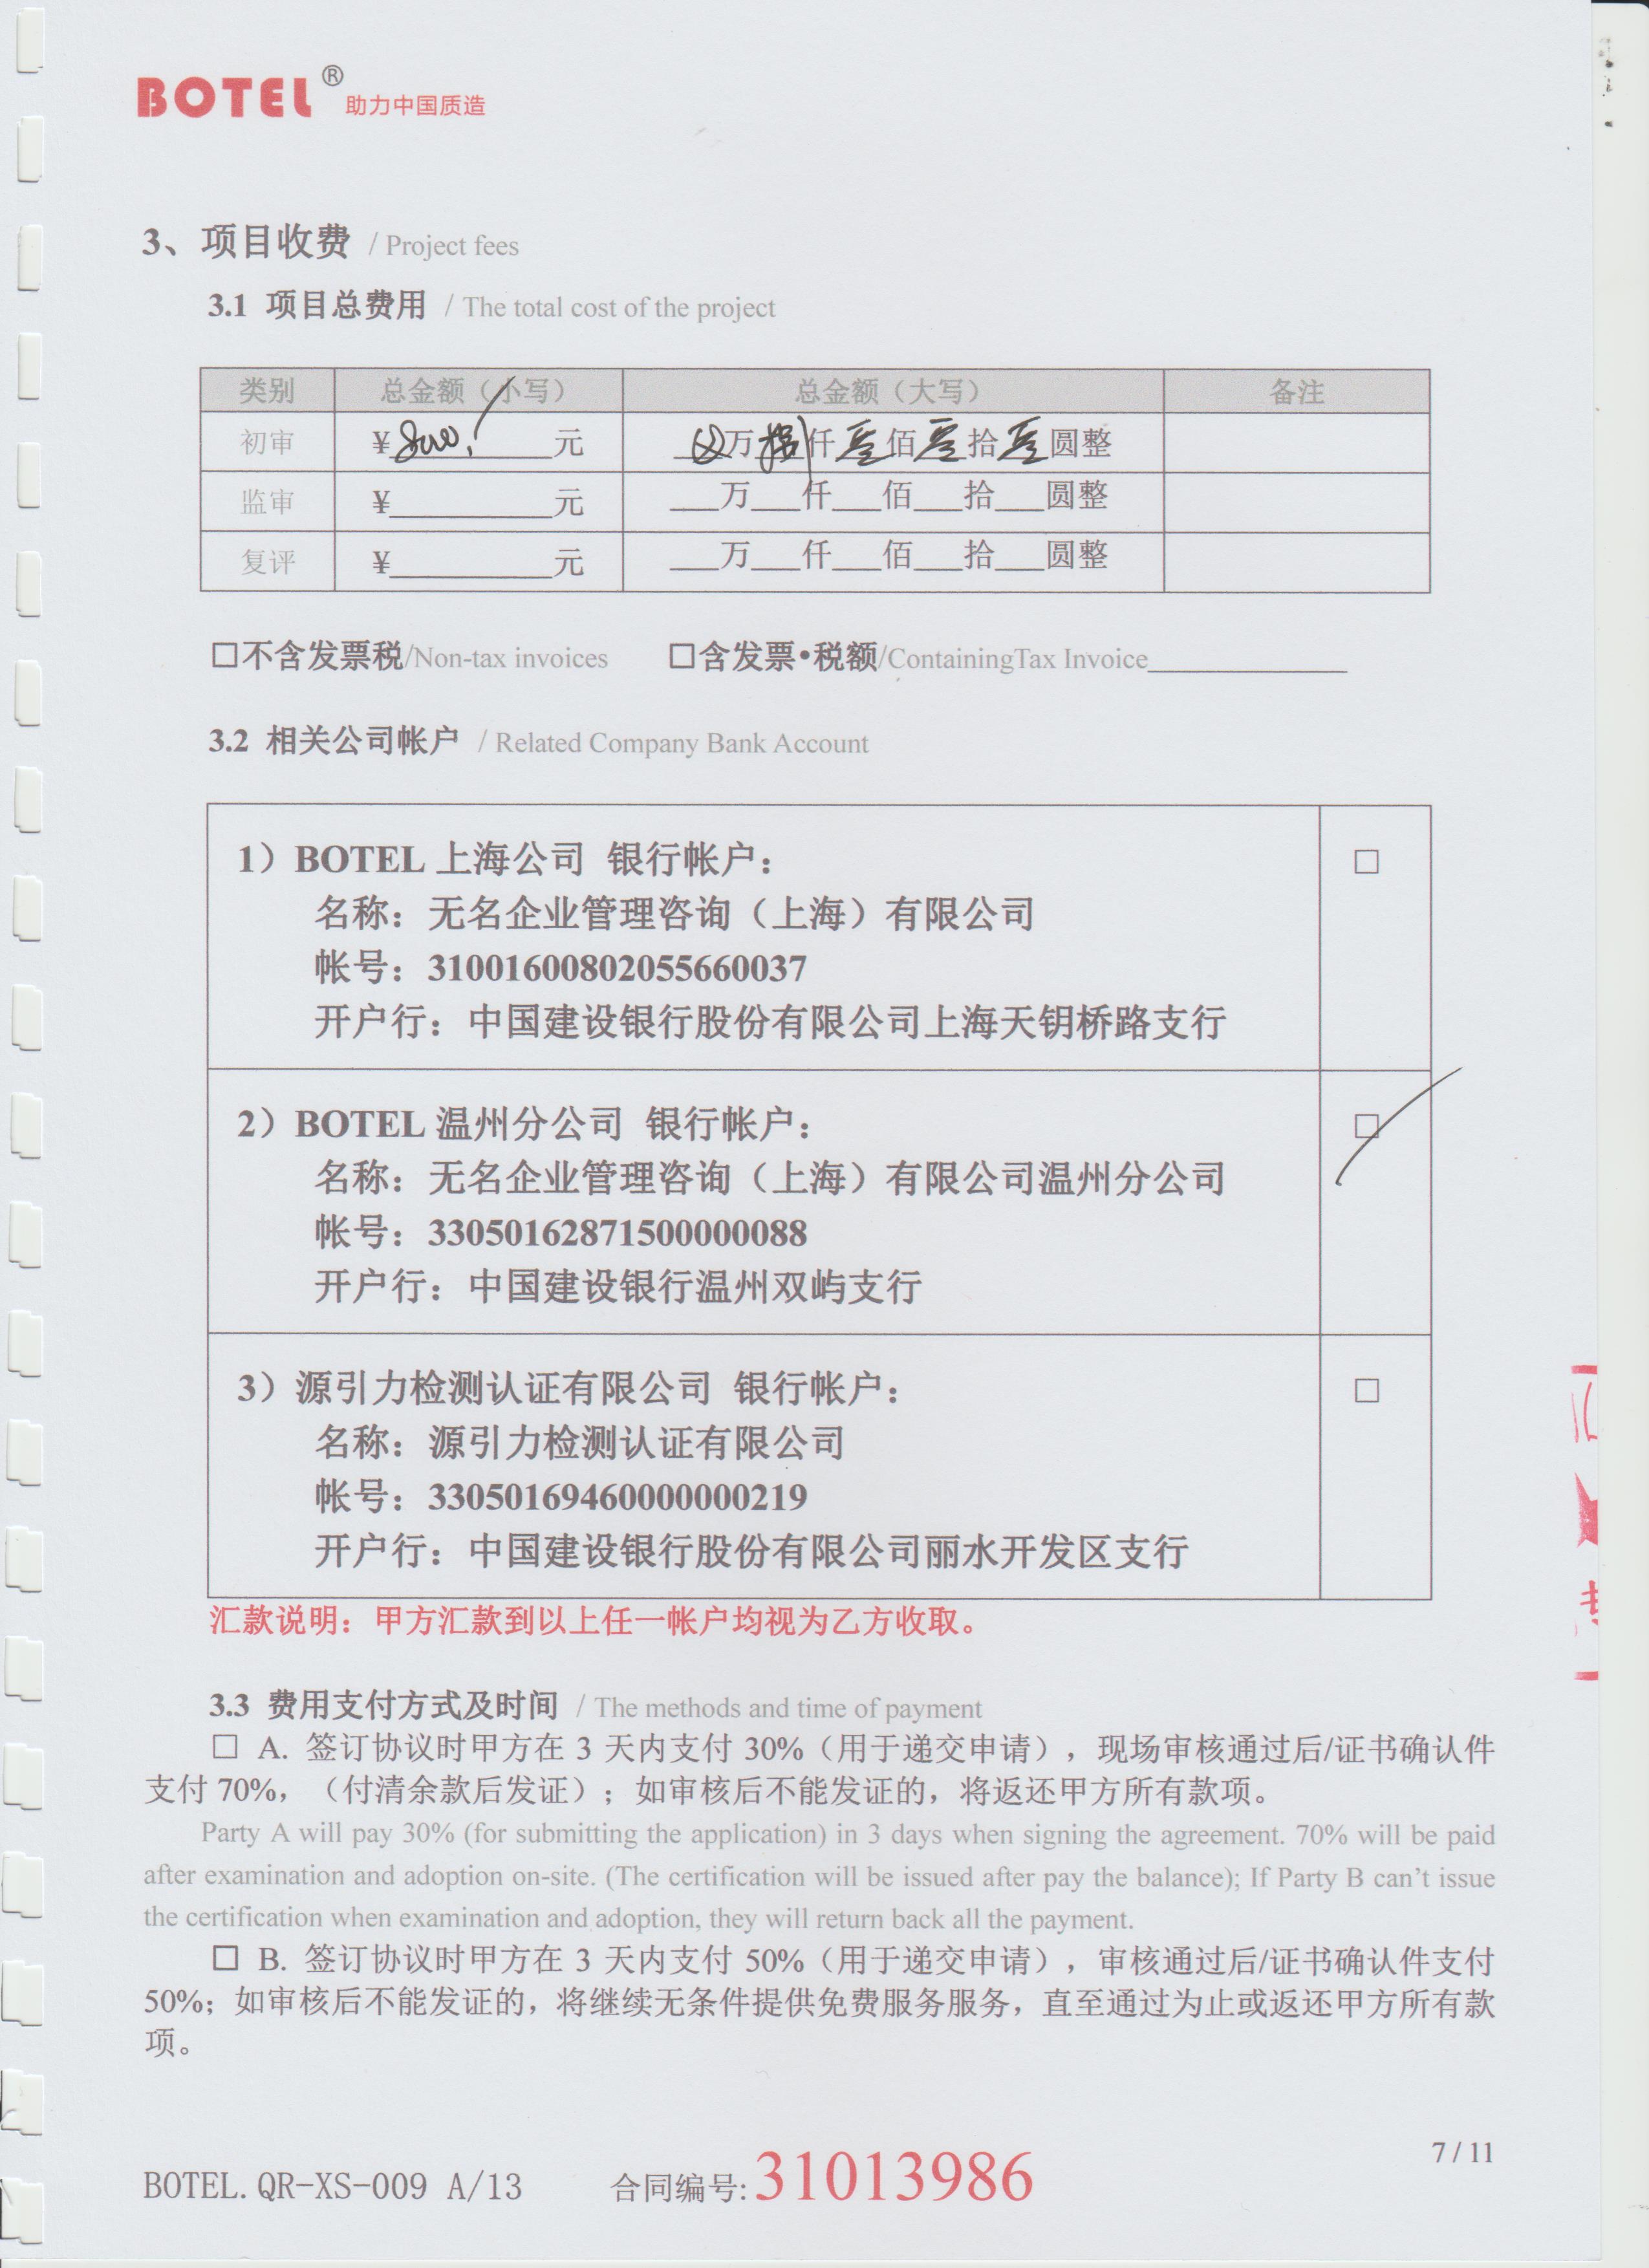 BOTEL® 助力中国质造
3、项目收费 / Project fees
3.1 项目总费用 / The total cost of the project
类别 总金额（小写） 总金额（大写） 备注
初审 ¥8000元 万捌仟零佰零拾零圆整
监审 ¥__________元 ___万___仟___佰___拾___圆整
复评 ¥__________元 ___万___仟___佰___拾___圆整
□不含发票税/Non-tax invoices □含发票•税额/ContainingTax Invoice____________
3.2 相关公司帐户 / Related Company Bank Account
1）BOTEL 上海公司 银行帐户： □
名称：无名企业管理咨询（上海）有限公司
帐号：31001600802055660037
开户行：中国建设银行股份有限公司上海天钥桥路支行
2）BOTEL 温州分公司 银行帐户： □
名称：无名企业管理咨询（上海）有限公司温州分公司
帐号：33050162871500000088
开户行：中国建设银行温州双屿支行
3）源引力检测认证有限公司 银行帐户： □
名称：源引力检测认证有限公司
帐号：33050169460000000219
开户行：中国建设银行股份有限公司丽水开发区支行
汇款说明：甲方汇款到以上任一帐户均视为乙方收取。
3.3 费用支付方式及时间 / The methods and time of payment
□ A. 签订协议时甲方在 3 天内支付 30%（用于递交申请），现场审核通过后/证书确认件
支付 70%，（付清余款后发证）；如审核后不能发证的，将返还甲方所有款项。
Party A will pay 30% (for submitting the application) in 3 days when signing the agreement. 70% will be paid
after examination and adoption on-site. (The certification will be issued after pay the balance); If Party B can’t issue
the certification when examination and adoption, they will return back all the payment.
□ B. 签订协议时甲方在 3 天内支付 50%（用于递交申请），审核通过后/证书确认件支付
50%；如审核后不能发证的，将继续无条件提供免费服务服务，直至通过为止或返还甲方所有款
项。
7 / 11
BOTEL.QR-XS-009 A/13 合同编号:31013986